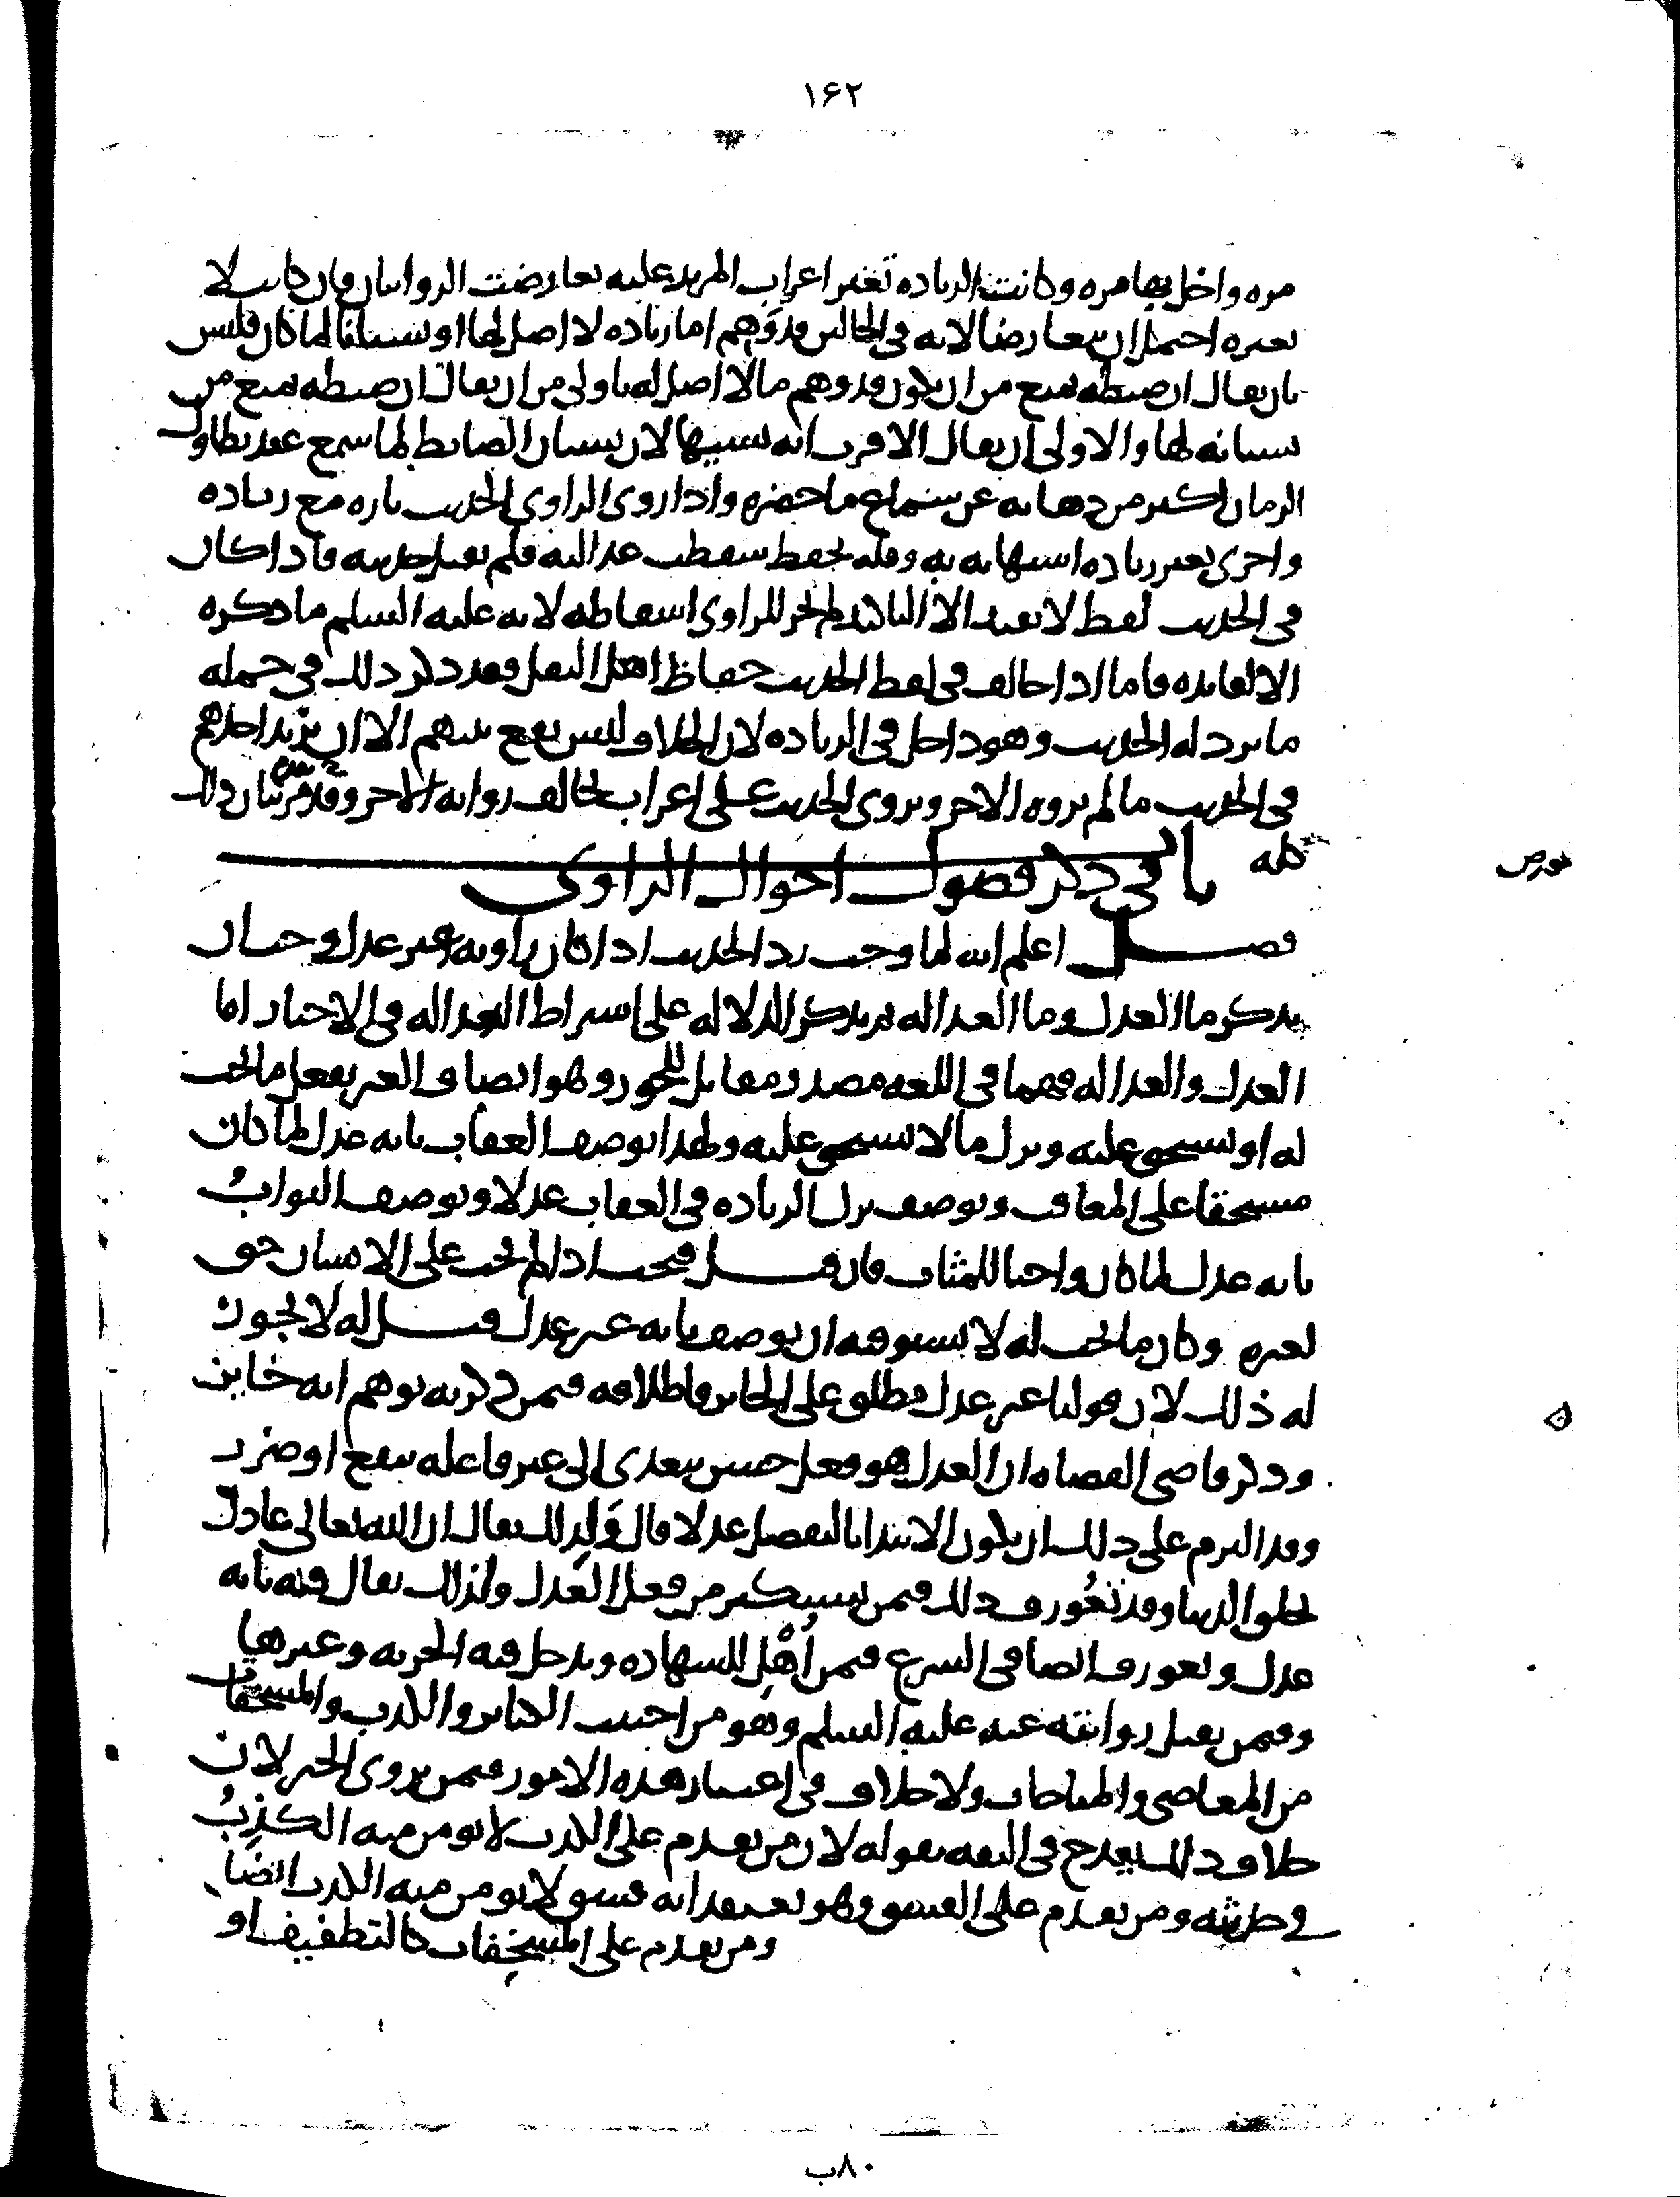 ۱۶۲
مره واخل بها مره وكانت الزياده تغير اعراب المزيد عليه تعارضت الروايتان وان كانت لا
تغيره احتمل ان يتعارضا لانه في الحالين قد وهم اما زياده لا اصل لها او نسيانا لما كان فليس
بان يقال ان ضبطه يمنع من ان يكون قد وهم ما لا اصل له باولى من ان يقال ان ضبطه يمنع من
نسيانه لها والاولى ان يقال الاقرب انه نسيها لان نسيان الضابط لما سمع عند تطاول
الزمان اكثر من ذهابه عن سماع ما حضره واذا روى الراوي الحديث تاره مع زياده
واخرى بغير زياده استهانه به وقله تحفظ سقطت عدالته فلم يقبل حديثه فاذا كان
في الحديث لفظ لا يفيد الا التاكيد لم يجز للراوي اسقاطه لانه عليه السلم ما ذكره
الا لفايده فاما اذا خالف في لفظ الحديث حفاظ اهل النقل فقد ذكر ذلك في جمله
ما يرد له الحديث وهو داخل في الزياده لان الخلاف ليس يقع بينهم الا ان يزيد احدهم
في الحديث ما لم يروه الاخر ويروي الحديث على اعراب يخالف روايه الاخر وقد تقدم بيان ذلك
كله باب في ذكر فصول احوال الراوي
فصل اعلم انه لما وجب رد الحديث اذا كان راويه غير عدل وجب ان
يذكر ما العدل وما العداله ثم يذكر الدلاله على اشتراط العداله في الاخبار اما
العدل والعداله فهما في اللغه مصدر مقابل للجور وهو اتصاف الغير بفعل ما يجب
له او يستحق عليه وترك ما لا يستحق عليه ولهذا يوصف العقاب بانه عدل لما كان
مستحقا على المعاقب ويوصف ترك الزياده في العقاب عدلا ويوصف الثواب
بانه عدل لما كان واجبا للمثاب فان قيل فيجب اذا لم يجب على الانسان حق
لغيره وكان ما يجب له لا يستوفيه ان يوصف بانه غير عدل قيل له لا يجوز
له ذلك لان قولنا غير عدل يطلق على الجاير فاطلاقه فيمن ذكرته يوهم انه خاين
وذكر قاضي القضاه ان العدل هو فعل حسن يتعدى الى غير فاعله بنفع او ضرر
وقد التزم على ذلك ان يكون الابتدا بالتفضل عدلا قال ولذلك يقال ان الله تعالى عادل
بخلق الدنيا وقد تعورف ذلك فيمن يستكثر من فعل العدل ولذلك يقال فيه بانه
عدل وتعورف ايضا في الشرع فيمن اهل للشهاده ويدخل فيه الحريه وغيرها
وفيمن يقبل روايته عنه عليه السلم وهو من اجتنب الكباير والكذب والمستخفات
من المعاصي والمباحات ولا خلاف في اعتبار هذه الامور فيمن يروي الخبر لان
خلاف ذلك يقدح في الثقه بقوله لان من يقدم على الكذب لا يومن منه الكذب
في حديثه ومن يقدم على الفسق وهو يعتقد انه فسق لا يومن منه الكذب ايضا
ومن يقدم على المستخفات كالتطفيف او
۸۰ب